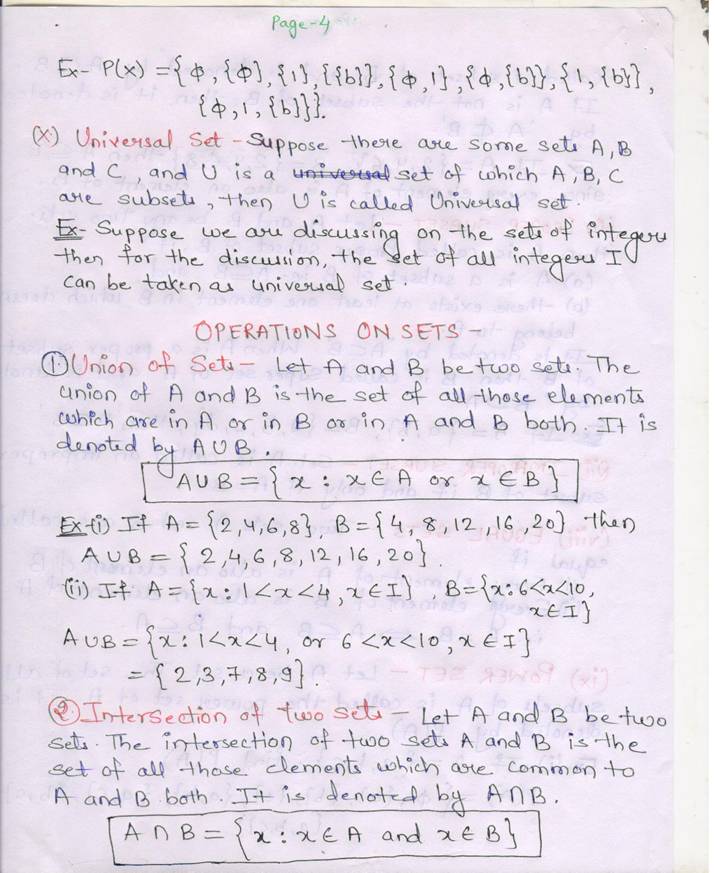 Page-4
Ex- P(x) = { ϕ, {ϕ}, {1}, {{b}}, {ϕ, 1}, {ϕ, {b}}, {1, {b}},
{ϕ, 1, {b}}}.
(x) Universal Set - Suppose there are some sets A, B
and C, and U is a universal set of which A, B, C
are subsets, then U is called Universal set.
Ex- Suppose we are discussing on the sets of integers
then for the discussion, the set of all integers I
can be taken as universal set.
OPERATIONS ON SETS -
① Union of Sets - Let A and B be two sets. The
union of A and B is the set of all those elements
which are in A or in B or in A and B both. It is
denoted by A∪B.
A∪B = { x : x ∈ A or x ∈ B }
Ex-(i) If A = {2, 4, 6, 8}, B = {4, 8, 12, 16, 20} then
A∪B = { 2, 4, 6, 8, 12, 16, 20}.
(ii) If A = {x : 1 < x < 4, x ∈ I}, B = {x : 6 < x < 10,
x ∈ I}
A∪B = {x : 1 < x < 4, or 6 < x < 10, x ∈ I}
= { 2, 3, 7, 8, 9}.
② Intersection of two sets - Let A and B be two
sets. The intersection of two sets A and B is the
set of all those elements which are common to
A and B both. It is denoted by A∩B.
A ∩ B = { x : x ∈ A and x ∈ B }